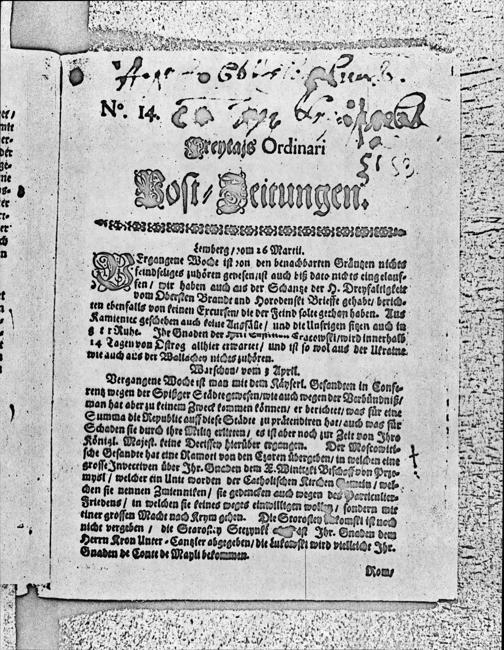 No. 14.
Freytags Ordinari
Post-Zeitungen.
Lemberg/ vom 26 Martii.
VErgangene Woche ist von den benachbarten Gräntzen nichts
feindseliges zuhören gewesen/ ist auch biß dato nichts eingelauf-
fen/ wir haben auch aus der Schantze der H. Dreyfaltigkeit
vom Obersten Brandt and Horodenski Brieffe gehabt/ berich-
ten ebenfals von keinen Excursen/ die der Feind solte gethan haben. Aus
Kamieniec geschehen auch keine Ausfälle/ und die Unsrigen sitzen auch in
Ruhe. Ihr Gnaden der Cracowski/ wird innerhalb
14 Tagen von Ostrog allhier erwartet/ und ist so wol aus der Ukraine
wie auch aus der Wallachey nichts zuhören.
Warschau/ vom 3 April.
Vergangene Woche ist man mit dem Käyserl. Gesandten in Confe-
rentz wegen der Spißger Städte gewesen/ wie auch wegen der Verbündniß/
man hat aber zu keinem Zweck kommen können/ er berichtet/ was für eine
Summa die Republic auff diese Städte zu prätendiren hat/ auch was für
Schaden sie durch ihre Militz erlitten/ es ist aber noch zur Zeit von Ihro
Königl. Majest. keine Decissey hierüber ergangen. Der Moscowiti-
sche Gesandte hat eine Ramort von den Czaren übergeben/ in welchen eine
grosse Invectiven über Ihr. Gnaden dem X. Winitzki Bischoff von Prze-
mysl/ welcher ein Unit worden der Catholischen Kirchen / wel-
chen sie nennen Zmienniken/ sie gedencken auch wegen des
Friedens/ in welchen sie keines weges einwilligen wollen/ sondern mit
einer grossen Macht nach Krym gehen. Die Starostey Lukomski ist noch
nicht vergeben/ die Starostey Stezynki Ihr. Gnaden dem
Herrn Kron Unter-Cantzler abgegeben/ die Lukowski wird vielleicht Ihr.
Gnaden de Conte de Mayli bekommen.
Rom/